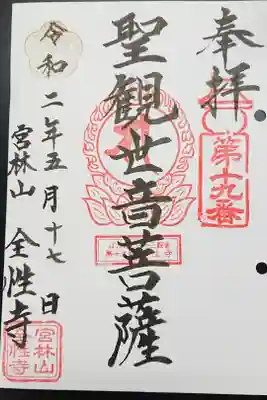 奉拝
第十九番
聖観世音菩薩
令和二年五月十七日
宮林山 全性寺
宮林山